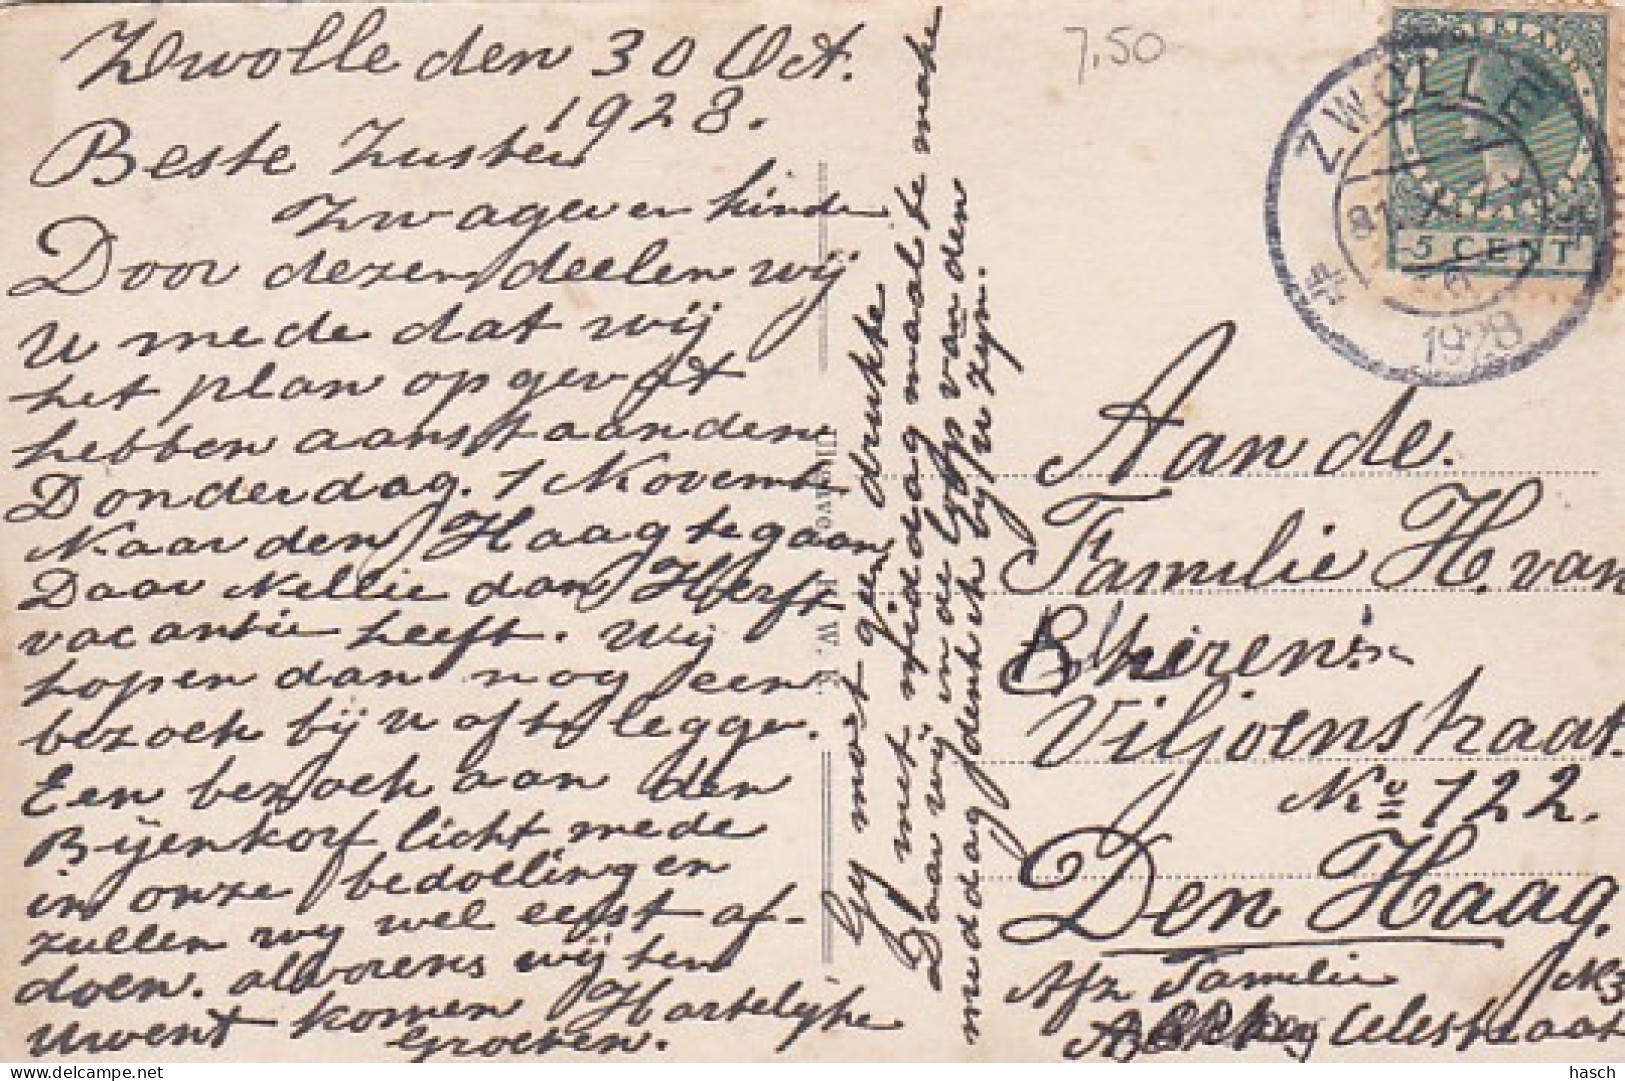 Zwolle den 30 Oct.
1928.
Beste Zuster
Zwager en kinde
Door dezen deelen wij
U mede dat wij
het plan opgevat
hebben aanstaanden
Donderdag. 1 Novemb
Naar den Haag te gaan
Daar Nellie dan Herfst
vacantie heeft. Wij
hopen dan nog een
bezoek bij U af te leggen.
Een bezoek aan den
Bijenkorf licht mede
in onze bedoelingen
zullen wy wel eerst af-
doen. alvorens wij ten
Uwent komen Hartelijke
Groeten.
Gy moet geen drukte
met middag maal te make
Daar wij in de loop van den
middag denk ik by U zyn.
7,50
ZWOLLE
1928
5 CENT
Aan de.
Familie H. van
Viljoenstraat.
No 122.
Den Haag.
Afz Familie
Celestraat
hasch